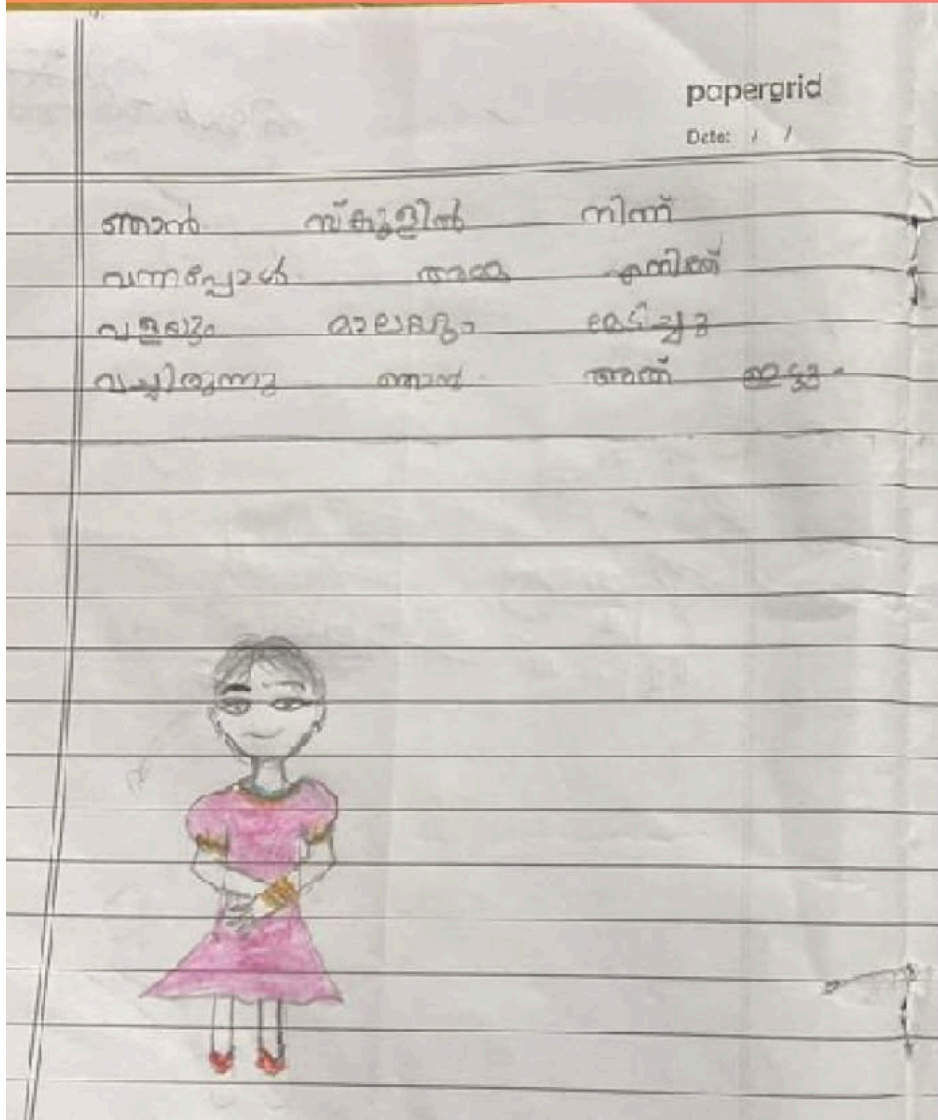 papergrid
Date: / /
ഞാൻ സ്കൂളിൽ നിന്ന്
വന്നപ്പോൾ അമ്മ എനിക്ക്
വളയും മാലയും മേടിച്ചു
വച്ചിരുന്നു ഞാൻ അത് ഇട്ടു.